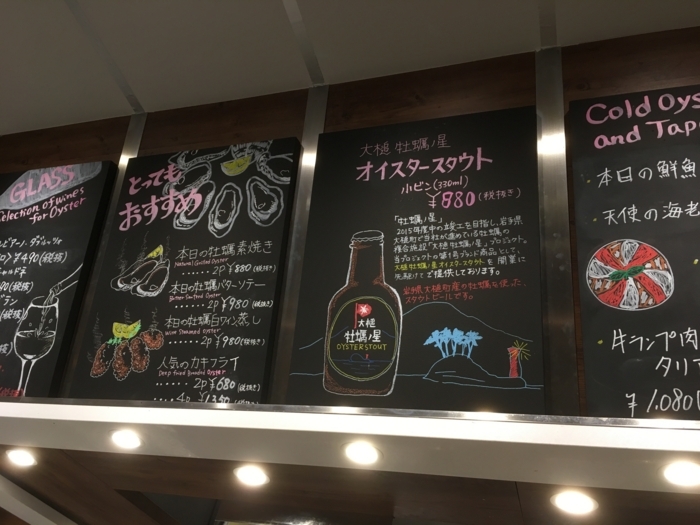 GLASS
Selection of wines
for Oyster
¥490(税抜)
とっても
おすすめ
本日の牡蠣素焼き
Natural Grilled Oyster
・・・・・・2p ¥880(税抜き)
本日の牡蠣バターソテー
Butter Sauteed Oyster
・・・・・・2p ¥980(税抜き)
本日の牡蠣白ワイン蒸し
Wine Steamed Oyster
・・・・・・2p ¥980(税抜き)
人気のカキフライ
Deep fried Breaded Oyster
・・・・・2p ¥680(税抜き)
・・・・・4p
大槌 牡蠣ノ星
オイスタースタウト
小ビン(330ml)
¥880(税抜き)
「牡蠣ノ星」
2015年度中の竣工を目指し、岩手県
大槌町で当社が進めている牡蠣の
複合施設「大槌牡蠣ノ星」プロジェクト。
当プロジェクトの第1号ブランド商品として、
大槌牡蠣ノ星オイスタースタウトを開業に
先駆けてご提供しております。
岩手県大槌町産の牡蠣を使った、
スタウトビールです。
大槌
牡蠣ノ星
OYSTER STOUT
Cold Oys
and Tap
本日の鮮魚
天使の海老
牛ランプ肉
タリア
¥1,080